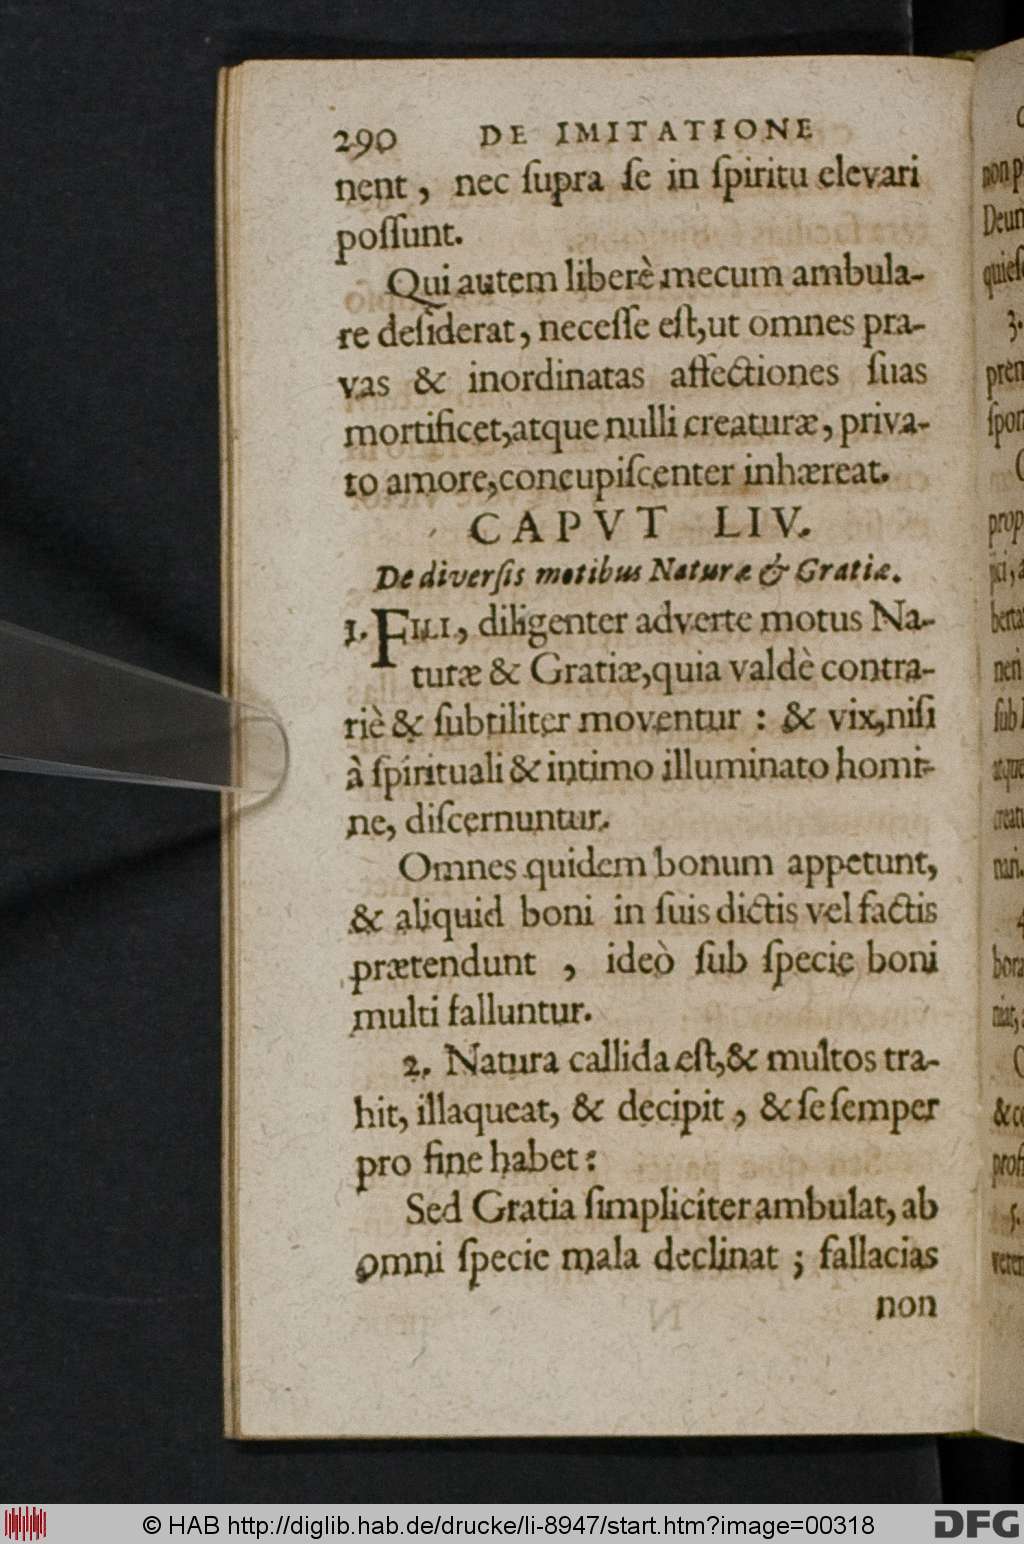 290 DE IMITATIONE
nent, nec ſupra ſe in ſpiritu elevari
poſſunt.
Qui autem liberè mecum ambula-
re deſiderat, neceſſe eſt, ut omnes pra-
vas & inordinatas affectiones ſuas
mortificet, atque nulli creaturæ, priva-
to amore, concupiſcenter inhæreat.
CAPVT LIV.
De diverſis motibus Naturæ & Gratiæ.
1. FILI, diligenter adverte motus Na-
turæ & Gratiæ, quia valdè contra-
riè & ſubtiliter moventur : & vix, niſi
à ſpirituali & intimo illuminato homi-
ne, diſcernuntur.
Omnes quidem bonum appetunt,
& aliquid boni in ſuis dictis vel factis
prætendunt , ideò ſub ſpecie boni
multi falluntur.
2. Natura callida eſt, & multos tra-
hit, illaqueat, & decipit, & ſe ſemper
pro fine habet :
Sed Gratia ſimpliciter ambulat, ab
omni ſpecie mala declinat ; fallacias
non
non p
Deum
quieſ
3.
pren
ſpon
prop
berta
neri
ſub
atque
creatu
nari.
bora
niat,
& co
prof
5.
veren
© HAB http://diglib.hab.de/drucke/li-8947/start.htm?image=00318
DFG